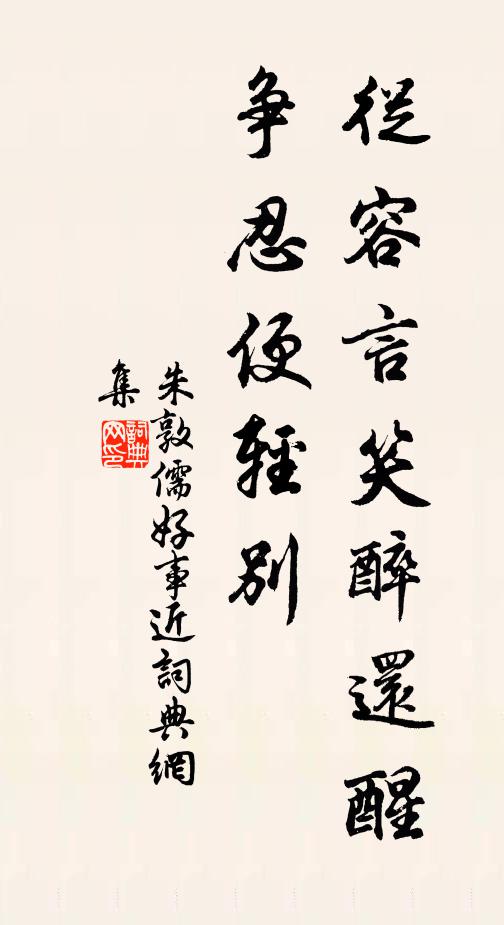 從容言笑醉還醒
爭忍便輕別
朱敦儒好事近詞典網
集
詞典
网印